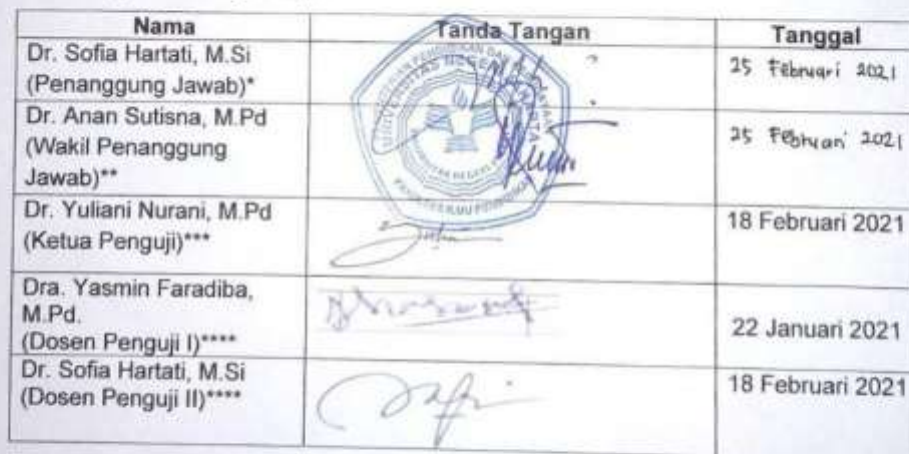 Nama Tanda Tangan Tanggal
Dr. Sofia Hartati, M.Si
(Penanggung Jawab)* 25 Februari 2021
Dr. Anan Sutisna, M.Pd
(Wakil Penanggung
Jawab)** 25 Februari 2021
Dr. Yuliani Nurani, M.Pd
(Ketua Penguji)*** 18 Februari 2021
Dra. Yasmin Faradiba,
M.Pd.
(Dosen Penguji I)**** 22 Januari 2021
Dr. Sofia Hartati, M.Si
(Dosen Penguji II)**** 18 Februari 2021